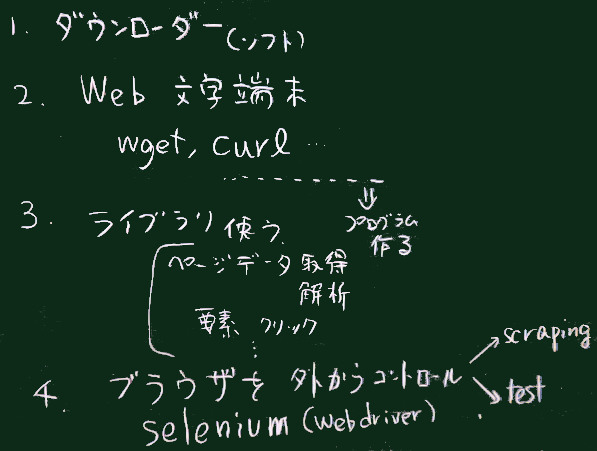 1. ダウンローダー(ソフト)
2. Web 文字端末
wget, curl ...
⇓
プログラム
作る
3. ライブラリ使う
ページデータ取得
解析
要素 クリック
⋮
4. ブラウザを外からコントロール
→ scraping
→ test
selenium (webdriver)